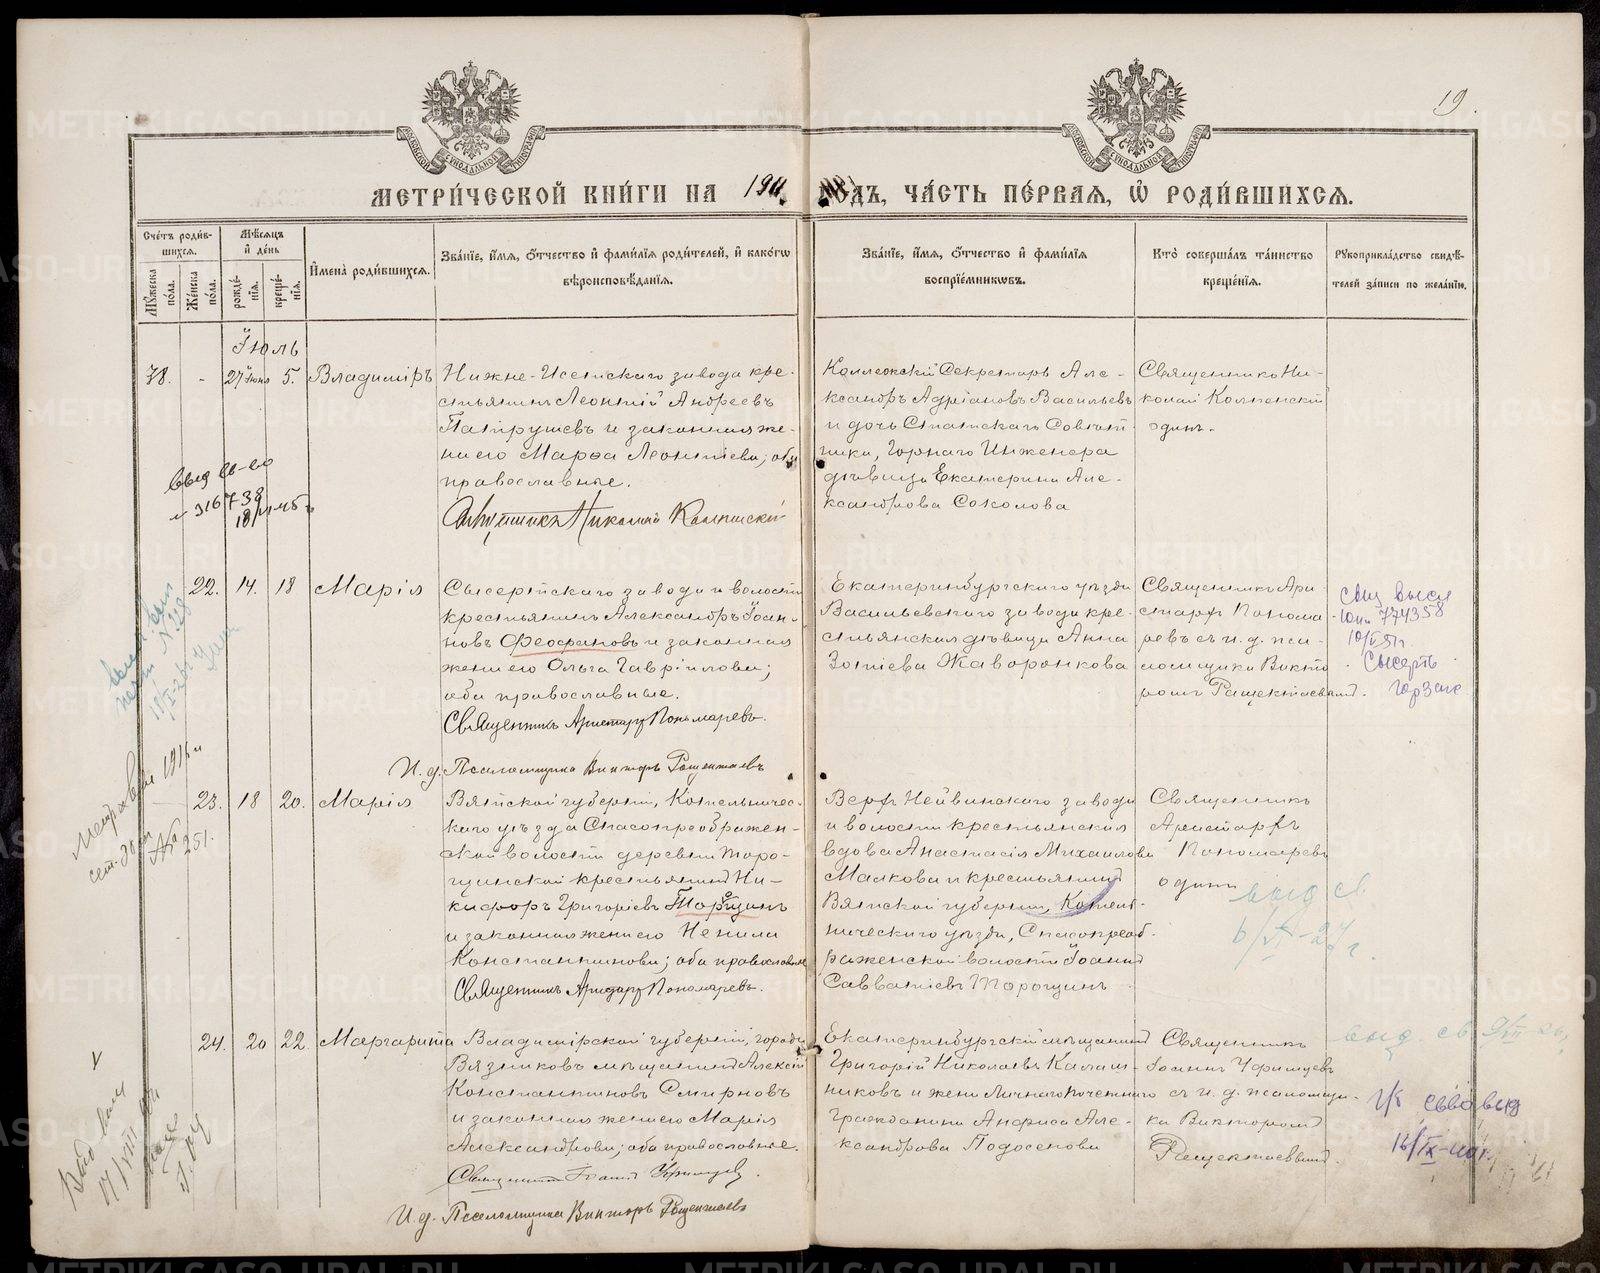 19
МЕТРИ́ЧЕСКОЙ КНИ́ГИ НА 1911 ГОДЪ, ЧА́СТЬ ПЕ́РВАЯ, Ѡ҆ РОДИ́ВШИХСЯ.
Сче́тъ роди́вшихся.
Мꙋ́жеска по́ла.
Же́нска по́ла.
Мѣ́сяцъ и҆ де́нь
рожде́нїя.
креще́нїя.
И҆мена̀ роди́вшихся.
Зва́нїе, и҆́мя, ѻ҆́тчество и҆ фами́лїя роди́телей, и҆ како́гѡ
вѣроисповѣ́данїя.
Зва́нїе, и҆́мя, ѻ҆́тчество и҆ фами́лїя
воспрїе́мникѡвъ.
Кто̀ соверша́лъ та́инство
креще́нїя.
Рꙋкоприкла́дство свидѣ́-
телей за́писи по жела́нїю.
Іюль
78. - 27 Іюня 5. Владиміръ
Нижне-Исетскаго завода кре-
стьянинъ Леонтій Андреевъ
Патрушевъ и законная же-
на его Марѳа Леонтіева; оба
православные.
Священникъ Николай
Коллежскій Секретарь Але-
ксандръ Адріановъ Васильевъ
и дочь Статскаго Совѣт-
ника, Горнаго Инженера
дѣвица Екатерина Але-
ксандрова Соколова
Священникъ Ни-
колай
одинъ.
22. 14. 18 Марія
Сысертскаго завода и волости
крестьянинъ Александръ Іоан-
новъ Феофановъ и законная
жена его Ольга Гавріилова;
оба православные.
Священникъ Аристархъ Пономаревъ.
И. д. Псаломщика Викторъ
Екатеринбургскаго уѣзда
Васильевскаго завода кре-
стьянская дѣвица Анна
Зотіева Жаворонкова
Священникъ Ари-
стархъ Понома-
ревъ съ и. д. пса-
ломщика Викто-
ромъ
774358
Сысерть
23. 18 20. Марія
Вятской губерніи, Котельничес-
каго уѣзда Спасопреображен-
ской волости деревни Торо-
щинской крестьянинъ Ни-
кифоръ Григоріевъ Торощинъ
и законная жена его Ненила
Константинова; оба православные
Священникъ Аристархъ Пономаревъ.
Верхъ Нейвинскаго завода
и волости крестьянская
вдова Анастасія Михаилова
Малкова и крестьянинъ
Вятской губерніи, Котель-
ническаго уѣзда, Спасопреоб-
раженской волости Іоаннъ
Савватіевъ Торощинъ
Священникъ
Аристархъ
Пономаревъ
одинъ
выд св
24. 20 22. Маргарита
Владимірской губерніи, города
Вязниковъ мѣщанинъ Алексѣй
Константиновъ Смирновъ
и законная жена его Марія
Александрова; оба православные.
Священникъ Іоаннъ
И. д. Псаломщика Викторъ
Екатеринбургскій мѣщанинъ
Григорій Николаевъ Калаш-
никовъ и жена Личнаго почетнаго
гражданина Анфиса Але-
ксандрова Подосенова
Священникъ
Іоаннъ
съ и. д. псаломщи-
ка Викторомъ
выд. св